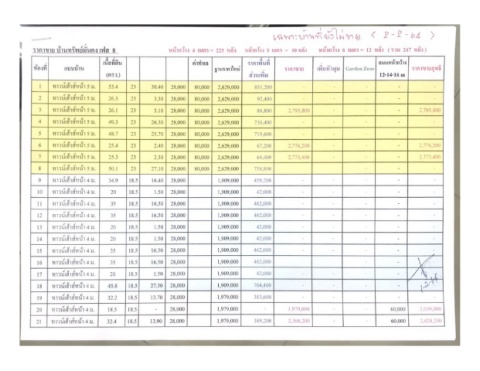 เฉพาะบ้านที่ยังไม่ขาย ( 2-2-64 )
ราคาขาย บ้านทรัพย์มั่นคง เฟส 8 หน้ากว้าง 4 เมตร = 225 หลัง หน้ากว้าง 5 เมตร = 10 หลัง หน้ากว้าง 6 เมตร = 12 หลัง ( รวม 247 หลัง )
ห้องที่ แบบบ้าน เนื้อที่ดิน (ตร.ว.) ค่าทำเล ฐานราคาใหม่ ราคาพื้นที่ส่วนเกิน ราคาขาย เพิ่มหัวมุม Garden Zone ถนนหน้ากว้าง 12-14-16 m ราคาขายสุทธิ
1 ทาวน์เฮ้าส์หน้า 5 ม. 53.4 23 30.40 28,000 80,000 2,629,000 851,200 - - - - -
2 ทาวน์เฮ้าส์หน้า 5 ม. 26.3 23 3.30 28,000 80,000 2,629,000 92,400 - - - - -
3 ทาวน์เฮ้าส์หน้า 5 ม. 26.1 23 3.10 28,000 80,000 2,629,000 86,800 2,795,800 - - - 2,795,800
4 ทาวน์เฮ้าส์หน้า 5 ม. 49.3 23 26.30 28,000 80,000 2,629,000 736,400 - - - - -
5 ทาวน์เฮ้าส์หน้า 5 ม. 48.7 23 25.70 28,000 80,000 2,629,000 719,600 - - - - -
6 ทาวน์เฮ้าส์หน้า 5 ม. 25.4 23 2.40 28,000 80,000 2,629,000 67,200 2,776,200 - - - 2,776,200
7 ทาวน์เฮ้าส์หน้า 5 ม. 25.3 23 2.30 28,000 80,000 2,629,000 64,400 2,773,400 - - - 2,773,400
8 ทาวน์เฮ้าส์หน้า 5 ม. 50.1 23 27.10 28,000 80,000 2,629,000 758,800 - - - - -
9 ทาวน์เฮ้าส์หน้า 4 ม. 34.9 18.5 16.40 28,000 1,909,000 459,200 - - - - -
10 ทาวน์เฮ้าส์หน้า 4 ม. 20 18.5 1.50 28,000 1,909,000 42,000 - - - - -
11 ทาวน์เฮ้าส์หน้า 4 ม. 35 18.5 16.50 28,000 1,909,000 462,000 - - - - -
12 ทาวน์เฮ้าส์หน้า 4 ม. 35 18.5 16.50 28,000 1,909,000 462,000 - - - - -
13 ทาวน์เฮ้าส์หน้า 4 ม. 20 18.5 1.50 28,000 1,909,000 42,000 - - - - -
14 ทาวน์เฮ้าส์หน้า 4 ม. 20 18.5 1.50 28,000 1,909,000 42,000 - - - - -
15 ทาวน์เฮ้าส์หน้า 4 ม. 35 18.5 16.50 28,000 1,909,000 462,000 - - - - -
16 ทาวน์เฮ้าส์หน้า 4 ม. 35 18.5 16.50 28,000 1,909,000 462,000 - - - - -
17 ทาวน์เฮ้าส์หน้า 4 ม. 20 18.5 1.50 28,000 1,909,000 42,000 - - - - -
18 ทาวน์เฮ้าส์หน้า 4 ม. 45.8 18.5 27.30 28,000 1,909,000 764,400 - - - - -
19 ทาวน์เฮ้าส์หน้า 4 ม. 32.2 18.5 13.70 28,000 1,979,000 383,600 - - - -
20 ทาวน์เฮ้าส์หน้า 4 ม. 18.5 18.5 - 28,000 1,979,000 - 1,979,000 - - 60,000 2,039,000
21 ทาวน์เฮ้าส์หน้า 4 ม. 32.4 18.5 13.90 28,000 1,979,000 389,200 2,368,200 - - 60,000 2,428,200